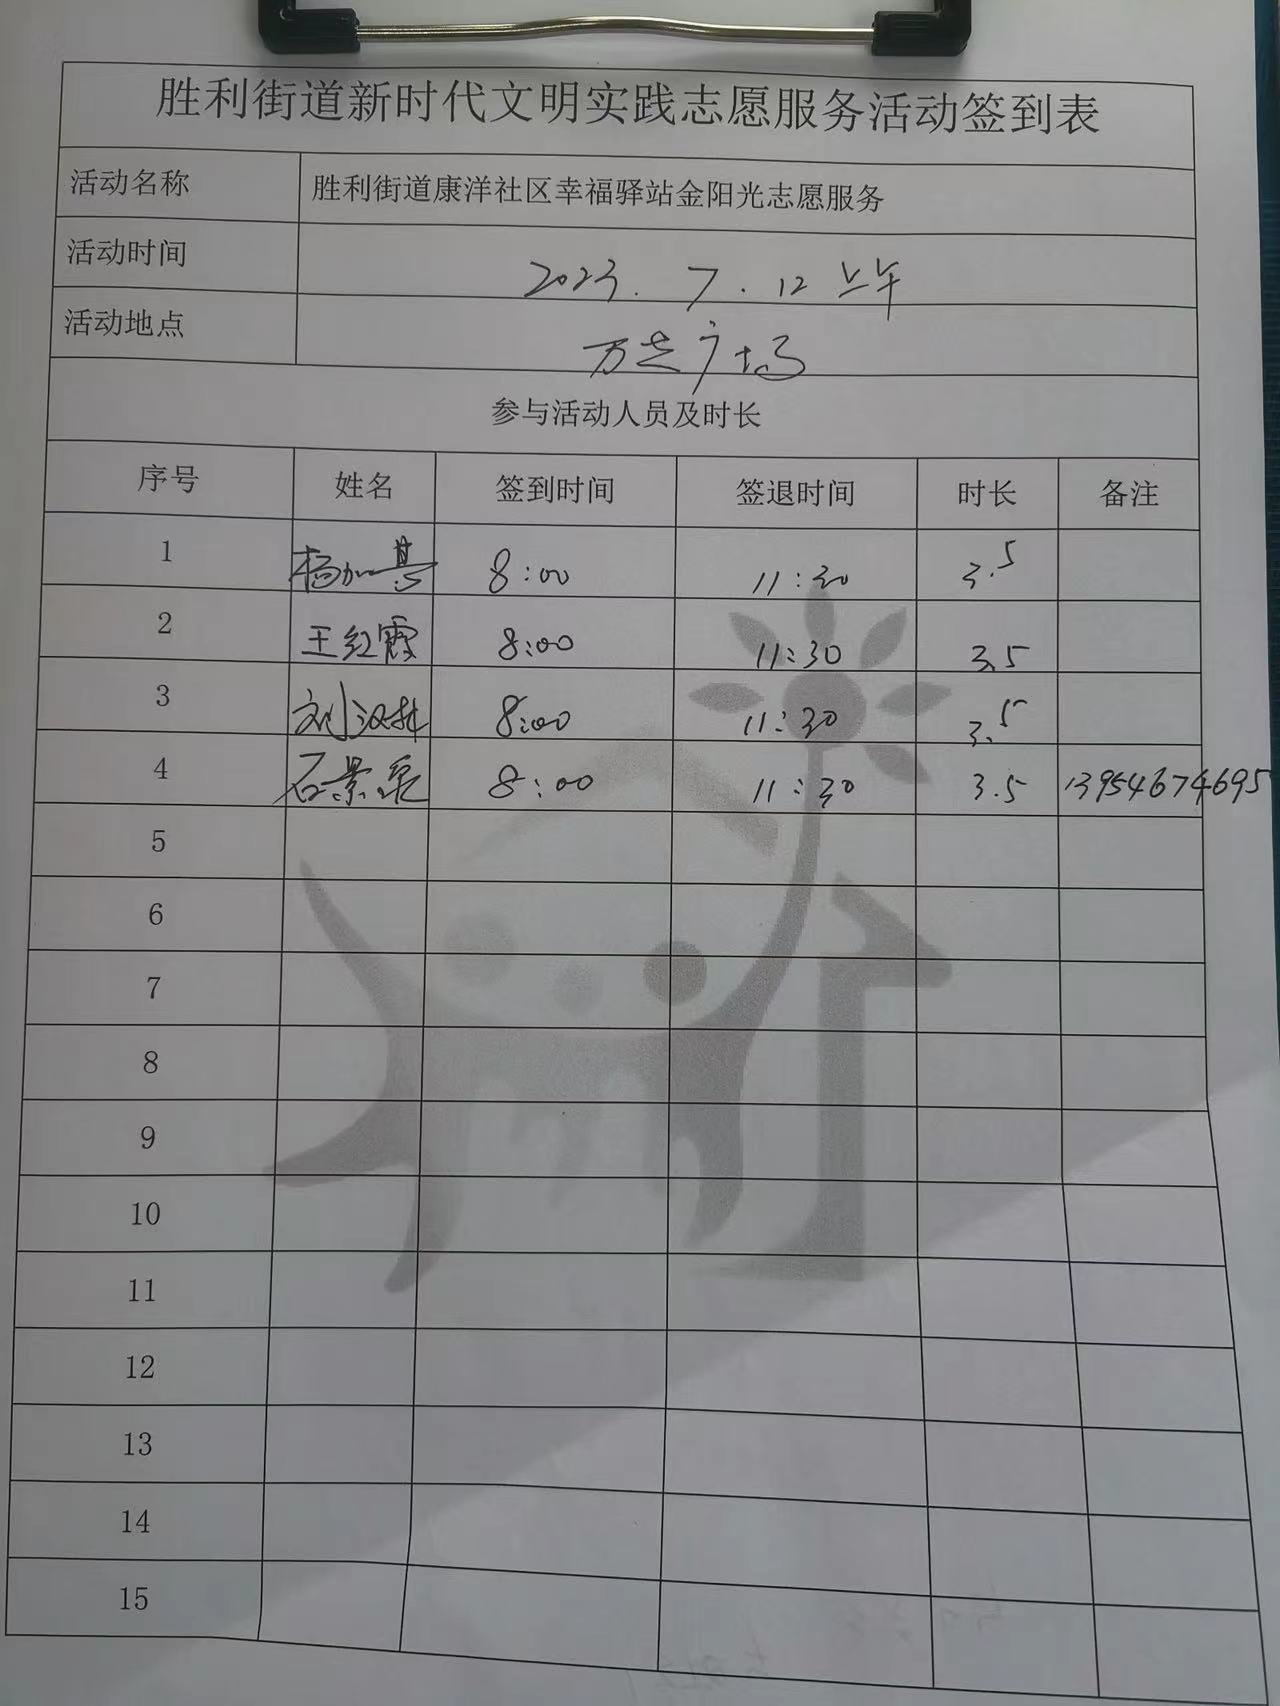 胜利街道新时代文明实践志愿服务活动签到表
活动名称 胜利街道康洋社区幸福驿站金阳光志愿服务
活动时间 2023.7.12 上午
活动地点 万达广场
参与活动人员及时长
序号 姓名 签到时间 签退时间 时长 备注
1 杨加 8:00 11:30 3.5
2 王红霞 8:00 11:30 3.5
3 刘汉林 8:00 11:30 3.5
4 石景泉 8:00 11:30 3.5 13954674695
5
6
7
8
9
10
11
12
13
14
15